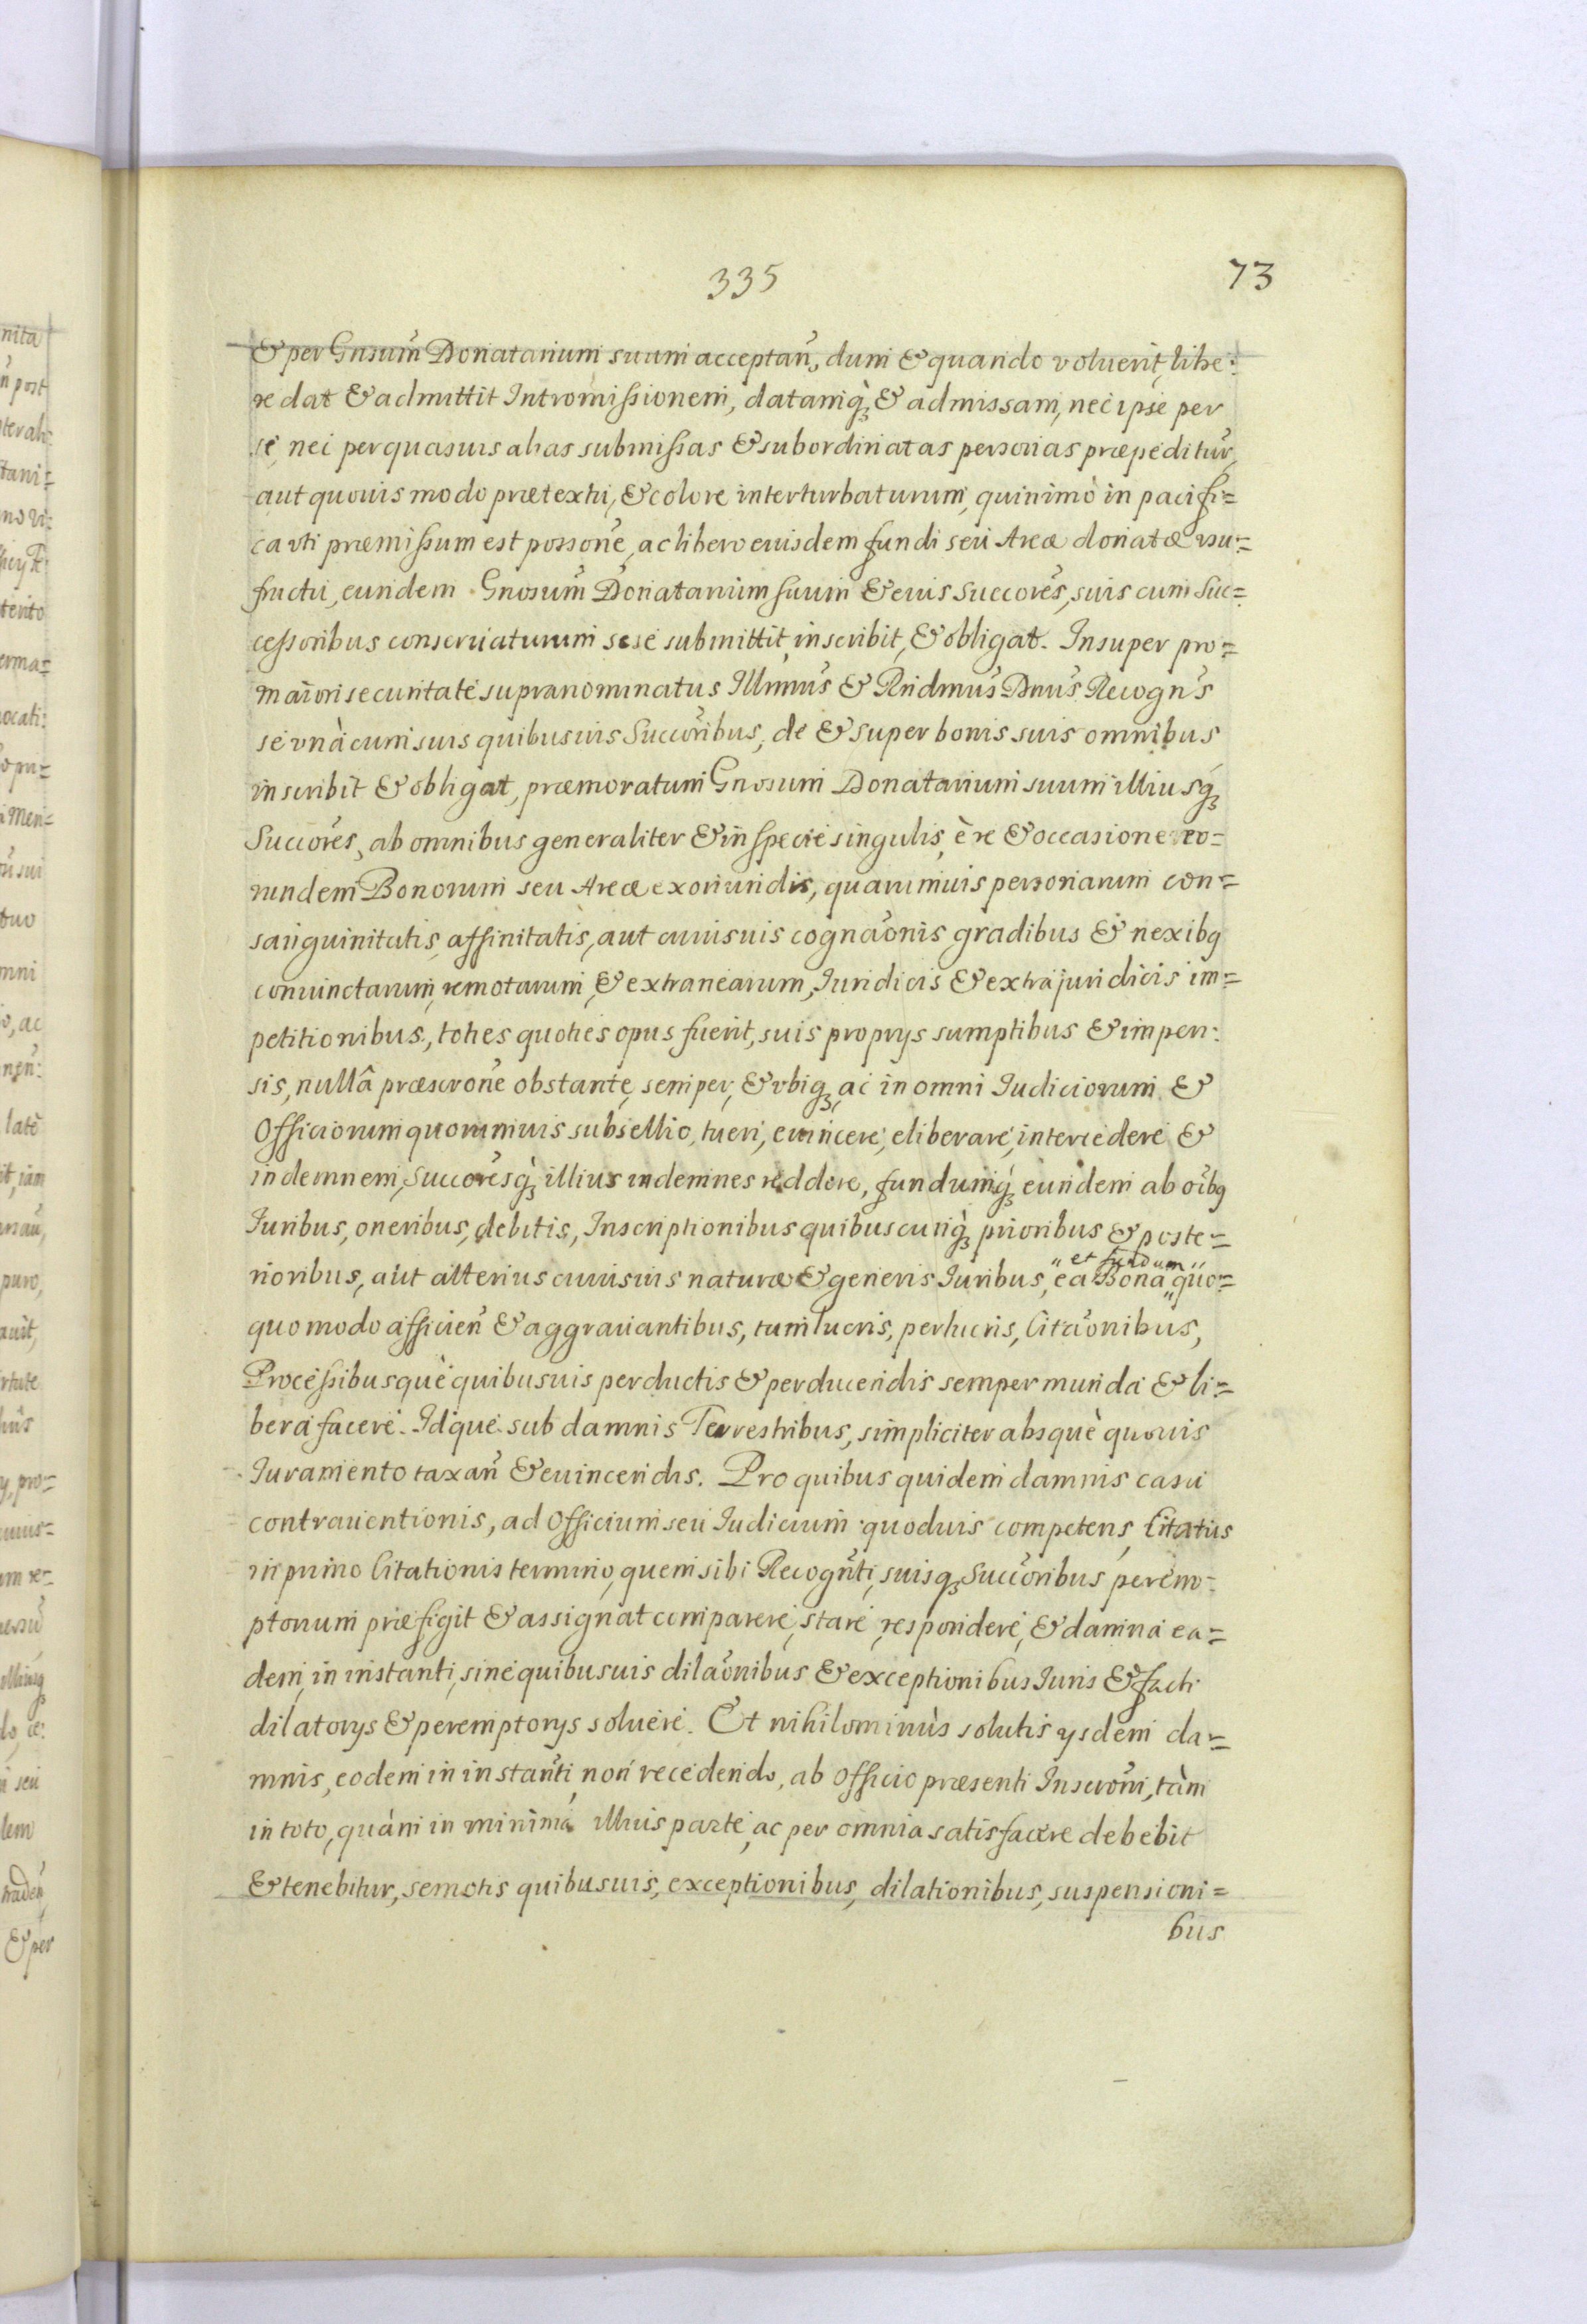 335
73
& per Gnsum̃ Donatarium suum acceptañ, dum & quando voluerit, libe:
re dat & admittit Intromissionem, datamq́ꝫ & admissam, nec ipse per
se, nec per quasuis alias submissas & subordinatas personas præpeditur̃,
aut quouis modo prætextu, & colore interturbaturum, quinimò in pacifi=
ca vti præmissum est possone͂, ac libero eiusdem fundi seu Areæ donatæ vsu=
fructu, eundem Gnosum̃ Donatarium suum & eius Succores̃, suis cum Suc=
cessoribus conseruaturum sese submittit, inscribit, & obligat. Insuper pro=
maiori securitate supranominatus Illmus̃ & Rndmus̃ Dnus̃ Recogns̃
se vnà cum suis quibusuis Succorĩbus, de & super bonis suis omnibus
inscribit & obligat, præmoratum Gnosum Donatarium suum illiusq́ꝫ
Succores̃, ab omnibus generaliter & in specie singulis, è re & occasione eo=
rundem Bonorum seu Areæ exoriundis, quarumuis personarum con=
sanguinitatis, affinitatis, aut cuiusuis cognaõnis gradibus & nexibꝗ
conuinctarum, remotarum, & extranearum, Iuridicis & extrajuridicis im=
petitionibus, toties quoties opus fuerit, suis proprys sumptibus & impen:
sis, nullâ præscrone͂ obstante, semper, & vbiqꝫ, ac in omni Iudiciorum &
Officiorum quorumuis subsellio, tueri, euincere, eliberare, intercedere &
indemnem, Succores̃q́ꝫ illius indemnes reddere, fundumq́ꝫ eundem ab oĩbꝗ
Iuribus, oneribus, debitis, Inscriptionibus quibuscunq́ꝫ prioribus & poste=
et fundum
rioribus, aut alterius cuiusuis naturæ & generis Iuribus, ea Bona quo=
quomodo afficieñ & aggrauantibus, tum lucris, perlucris, Citaõnibus,
Processibusquè quibusuis perductis & perducendis semper munda & li=
bera facere. Idque sub damnis Terrestribus, simpliciter absquè quouis
Iuramento taxañ & euincendis. Pro quibus quidem damnis casu
contrauentionis, ad Officium seu Iudicium quoduis competens, Citatus
in primo Citationis termino, quem sibi Recognt̃i, suisqꝫ Succorĩbus peremᷓ=
ptorium præfigit & assignat comparere, stare, respondere, & damna ea=
dem, in instanti, sine quibusuis dilaõnibus & exceptionibus Iuris & facti
dilatorys & peremptorys soluere. Et nihilominùs solutis ysdem da=
mnis, eodem in instanti, non recedendo, ab officio præsenti Inscroñi, tàm
in toto, quàm in minima illius parte, ac per omnia satisfacere debebit
& tenebitur, semotis quibusuis, exceptionibus, dilationibus, suspensioni=
bus